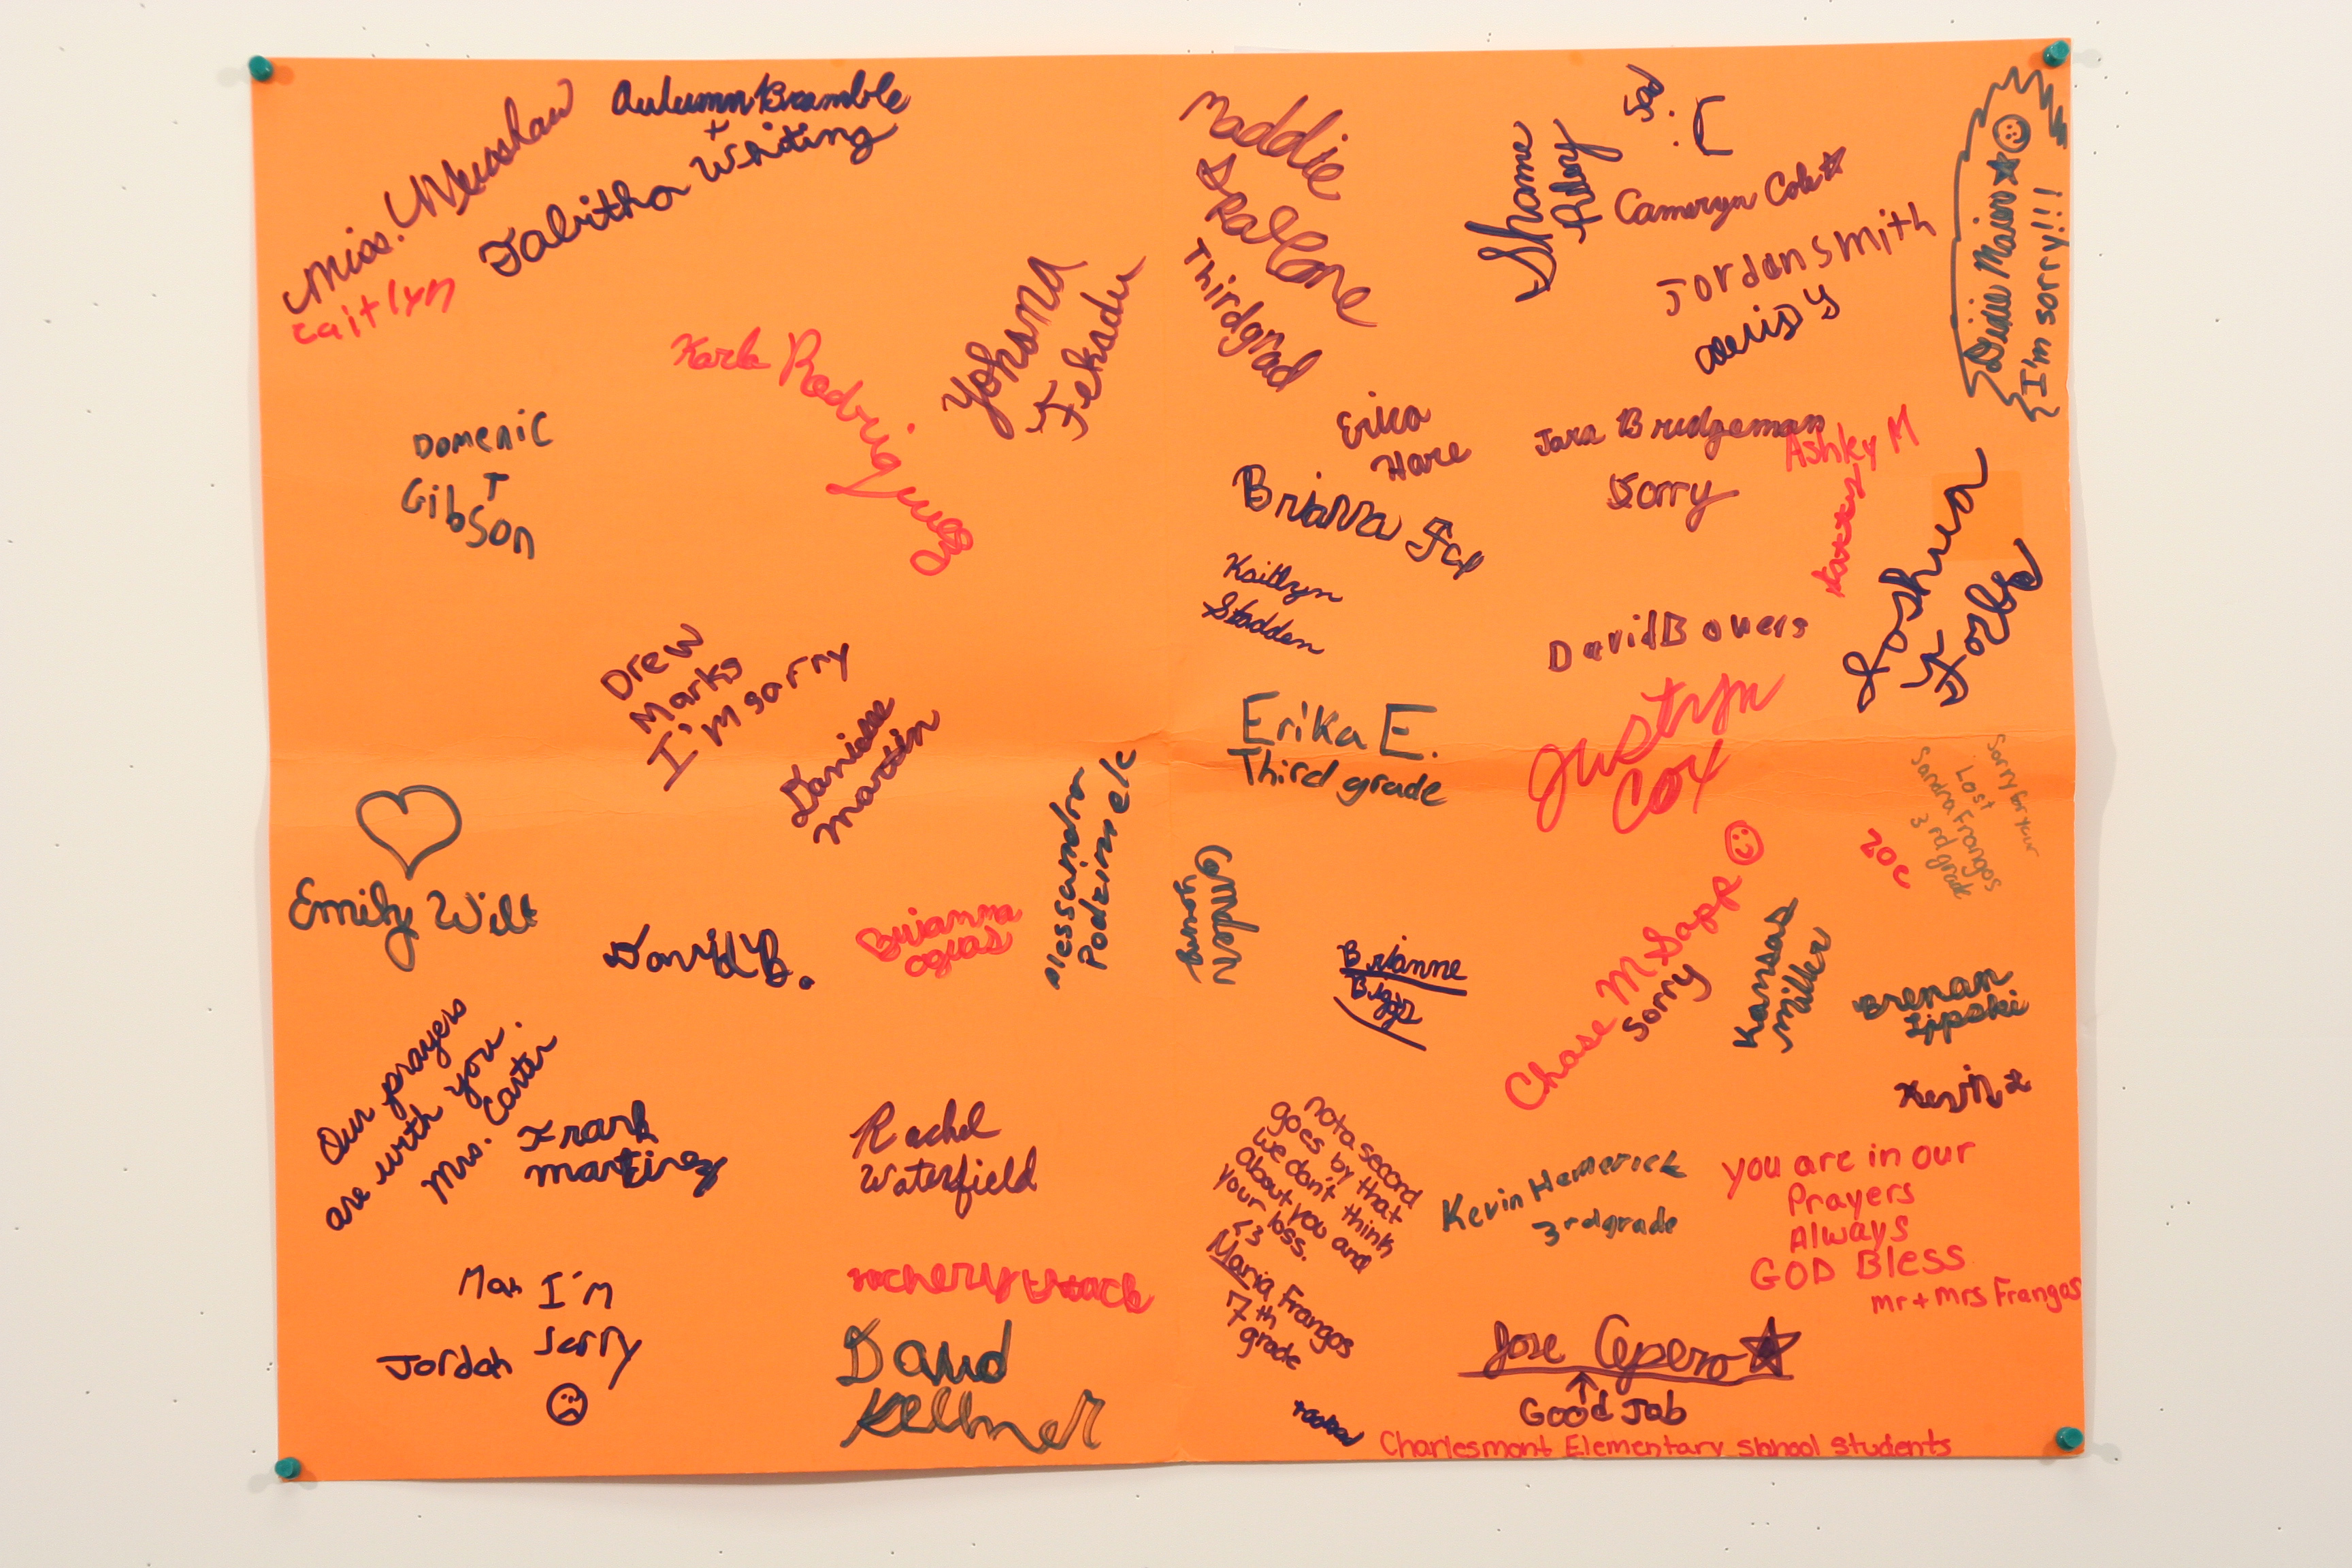 Miss. Mershaw
Caitlyn
Autumn Bramble
+
Tabitha Whiting
Karla Rodriguez
Yohana
Fekadu
Domenic
T
Gibson
Drew
Marks
I'm sorry
Danielle
martin
Emily Wilt
David B.
Brianna
Alessandra
Podzimek
Our prayers
are with you.
Mrs. Carter
Frank
martinez
Rachel
Waterfield
I'm
Sorry
Jordan
David
Kellner
Maddie
Thirdgrad
Shane
Sad
:(
Cameryn Cole
Jordan Smith
alexis y
I'm sorry!!!
Erica
Hare
Brianna Fox
Kaitlyn
Stadden
Jara Bridgeman
Sorry
Ashley M
Joshua
David Bowers
Erika E.
Third grade
Justyn
Cox
Sorry for your
Lost
Sandra Frangos
3rd grade
zoe
Camden
Brianne
Biggs
Chase M Sapp
Sorry
Kansas
Miller
Brenan
Lipski
Kevin
not a second
goes by that
we don't think
About you and
your loss.
<3
Maria Frangos
7th
grade
Kevin Hemerick
3rd grade
you are in our
Prayers
Always
GOD Bless
mr + mrs Frangos
Jose Cepero
Good Job
Charlesmont Elementary shhool students